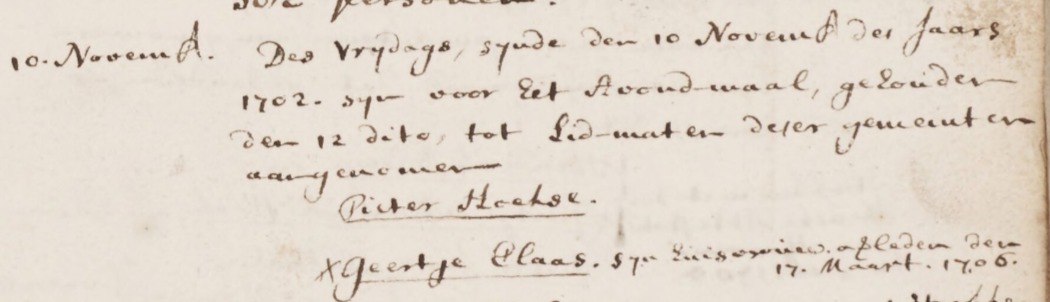 personen.
10. Novemb. Des Vrydags, synde den 10 Novemb des Jaars
1702. syn voor het Avond-maal, gehouden
den 12 dito, tot Lid-maten deser gemeinten
aangenomen
Pieter Hoekse.
X Geertje Claas. syn huisvrouw. afleden den
17. Maart. 1706.